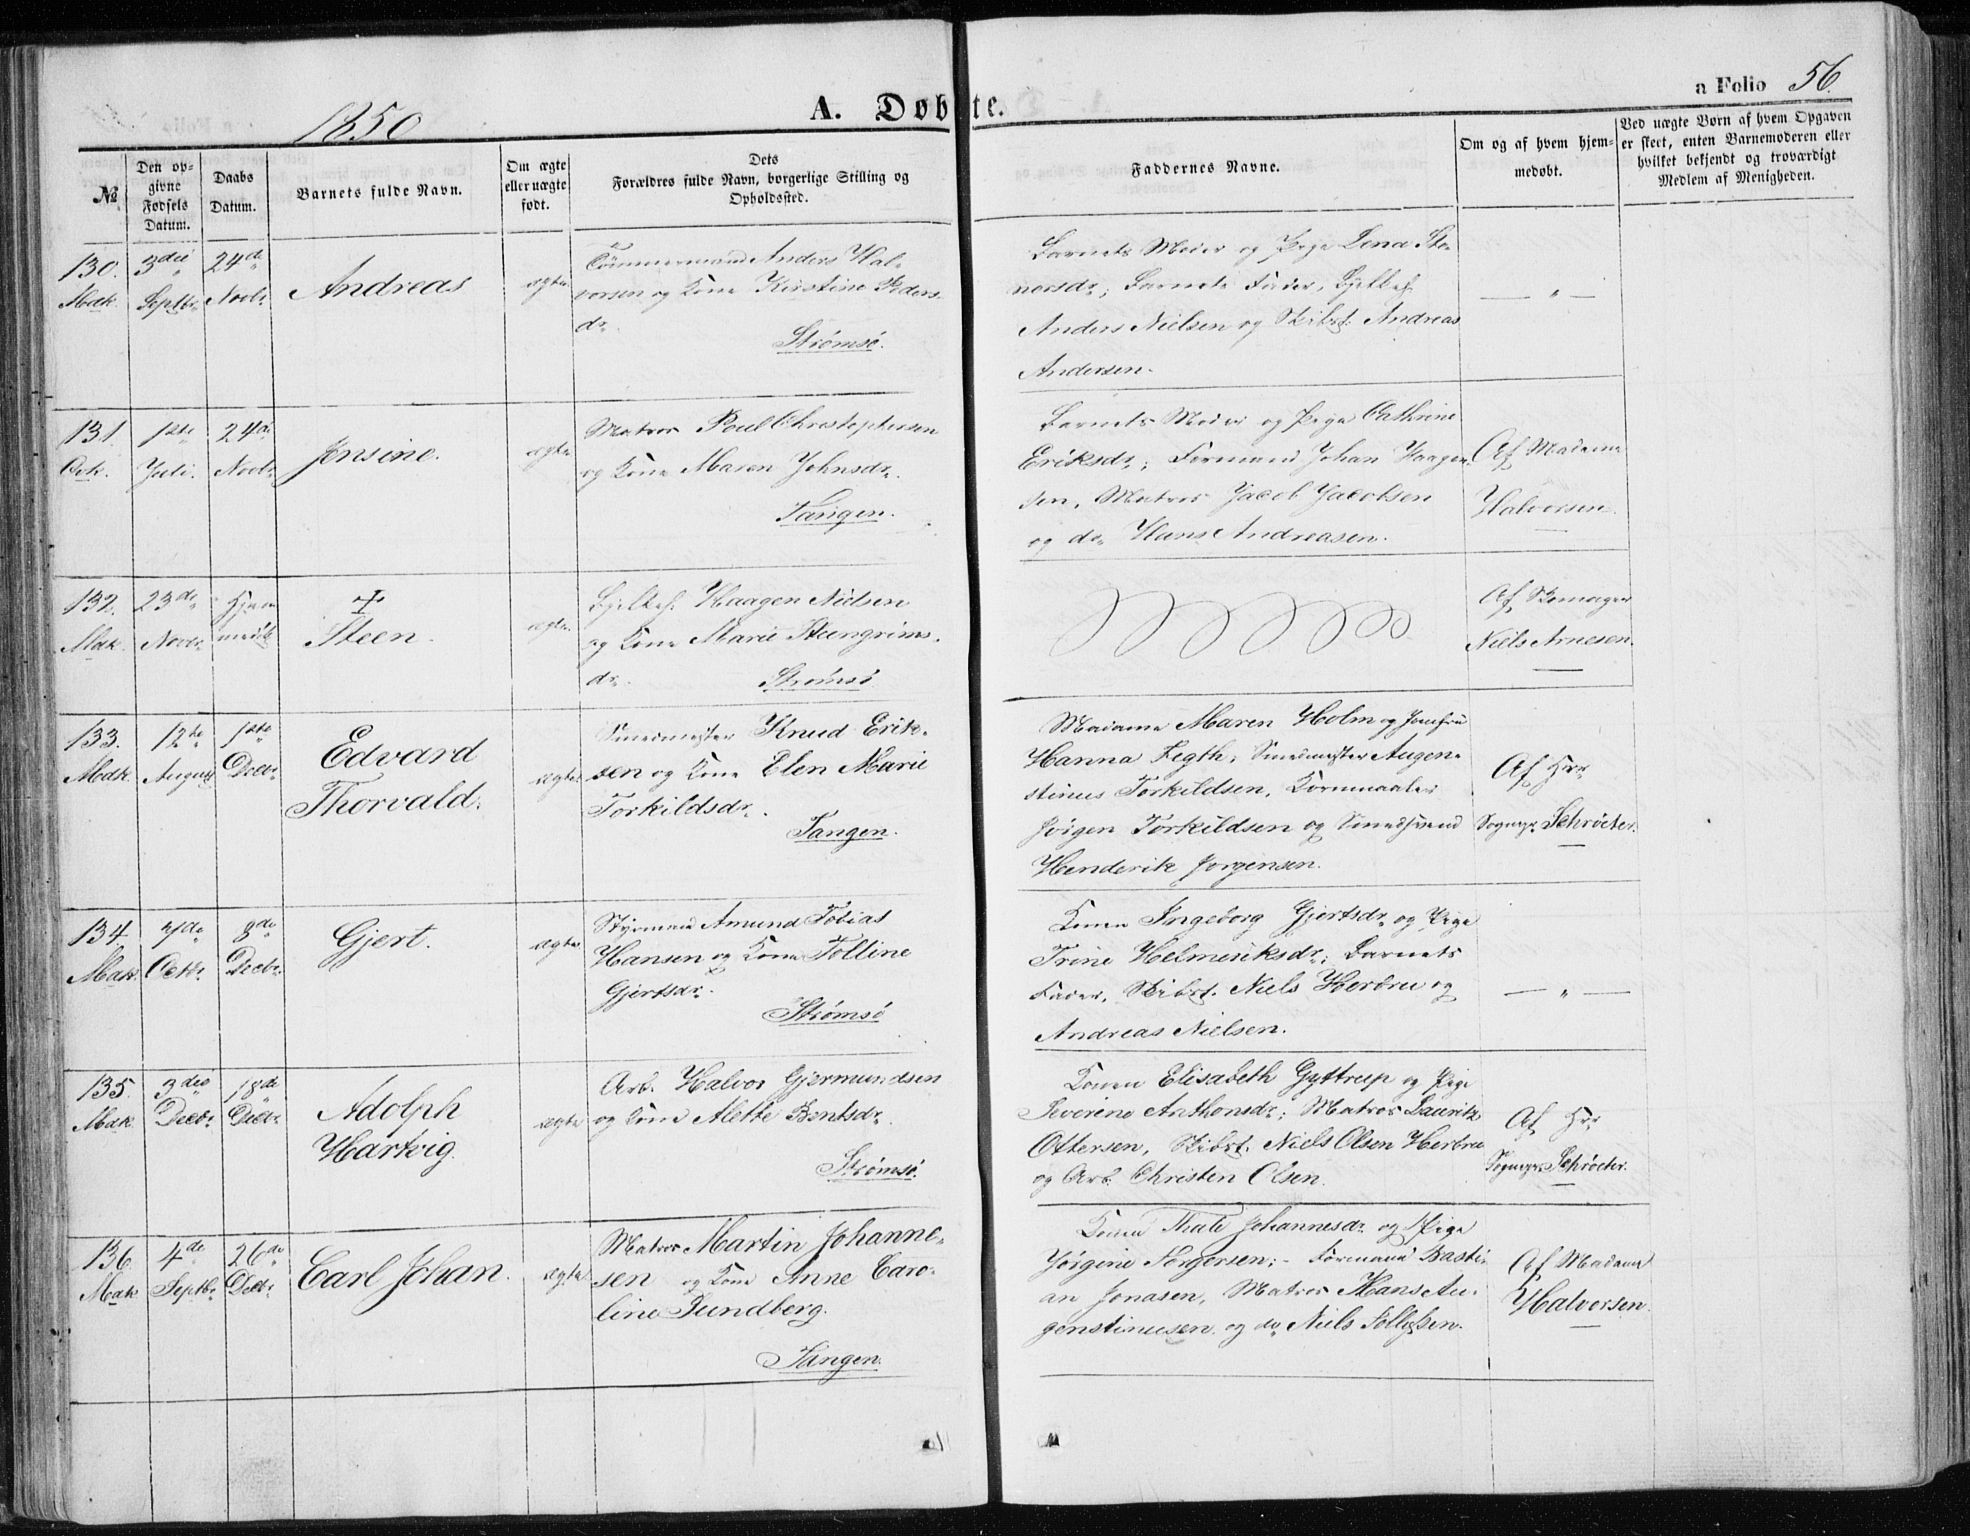 1850
A. Døbte.
a Folio 56.
№
Den opgivne Fødsels Datum.
Daabs Datum.
Barnets fulde Navn.
Om ægte eller uægte født.
Dets Forældres fulde Navn, borgerlige Stilling og Opholdssted.
Faddernes Navne.
Om og af hvem hjemmedøbt.
Ved uægte Børn af hvem Opgaven er skeet, enten Barnemoderen eller hvilket bekjendt og troværdigt Medlem af Menigheden.
130. Mdk.
3die Septbr.
24de Novbr.
Andreas
ægte
Tømmermand Anders Hal-
vorsen og Kone Kirstine Peders-
dr.
Strømsø.
Barnets Moder og Pige Lena Ste-
nersdr; Barnets Fader,
Anders Nielsen og Skibst. Andreas
Andersen.
— " —
131. Qvk.
1ste Juli.
24de Novbr.
Jonsine.
ægte
Matros Poul Christophersen
og Kone Maren Johnsdr.
Tangen.
Barnets Moder og Pige Cathrine
Eriksdr; Formand Johan Haagen-
sen, Matros Jacob Jacobsen
og do. Hans Andreasen.
Af Madame
Halvorsen.
132. Mdk.
23de Novbr.
Hjemmedøbt
+
Steen.
ægte.
Haagen Nielsen
og Kone Marie Steengrims-
dr.
Strømsø
Af Skomager
Niels Arnesen.
133. Mdk.
12te August
1ste Decbr.
Edvard
Thorvald.
ægte
Smedmester Knud Erik-
sen og Kone Elen Marie
Torkildsdr.
Tangen.
Madame Maren Holm og Jomfru
Hanna Fegth; Smedmester Augen-
stinus Torkildsen, Kornmaaler
Jørgen Torkildsen og Smedsvend
Henderik Jørgensen.
Af Hrr
Sognepr. Schrøeter.
134. Mdk.
7de Octbr.
8de Decbr.
Gjert.
ægte
Styrmand Amund Tobias
Hansen og Kone Tolline
Gjertsdr.
Strømsø
Konen Ingeborg Gjertsdr og Pige
Trine Helmeriksdr; Barnets
Fader, Skibst. Niels Herbru og
Andreas Nielsen.
— " —
135. Mdk
3die Decbr.
18de Decbr.
Adolph
Hartvig.
ægte
Arb. Halvor Gjermundsen
og Kone Alette Bentsdr.
Strømsø.
Konen Elisabeth Gyttrup og Pige
Severine Anthonsdr; Matros Lauritz
Ottersen, Skibst. Niels Olsen Herbru
og Arb. Christen Olsen.
Af Hrr
Sognepr. Schrøeter.
136. Mdk
4de Septbr.
26de Decbr.
Carl Johan.
ægte
Matros Martin Johanne-
sen og Kone Anne Caro-
line Sundberg.
Tangen.
Konen Thale Johannesdr og Pige
Jørgine Torgersen; - Formand Basti-
an Jonasen, Matros Hans Au-
genstinusen og do Niels Tollefsen.
Af Madame
Halvorsen.